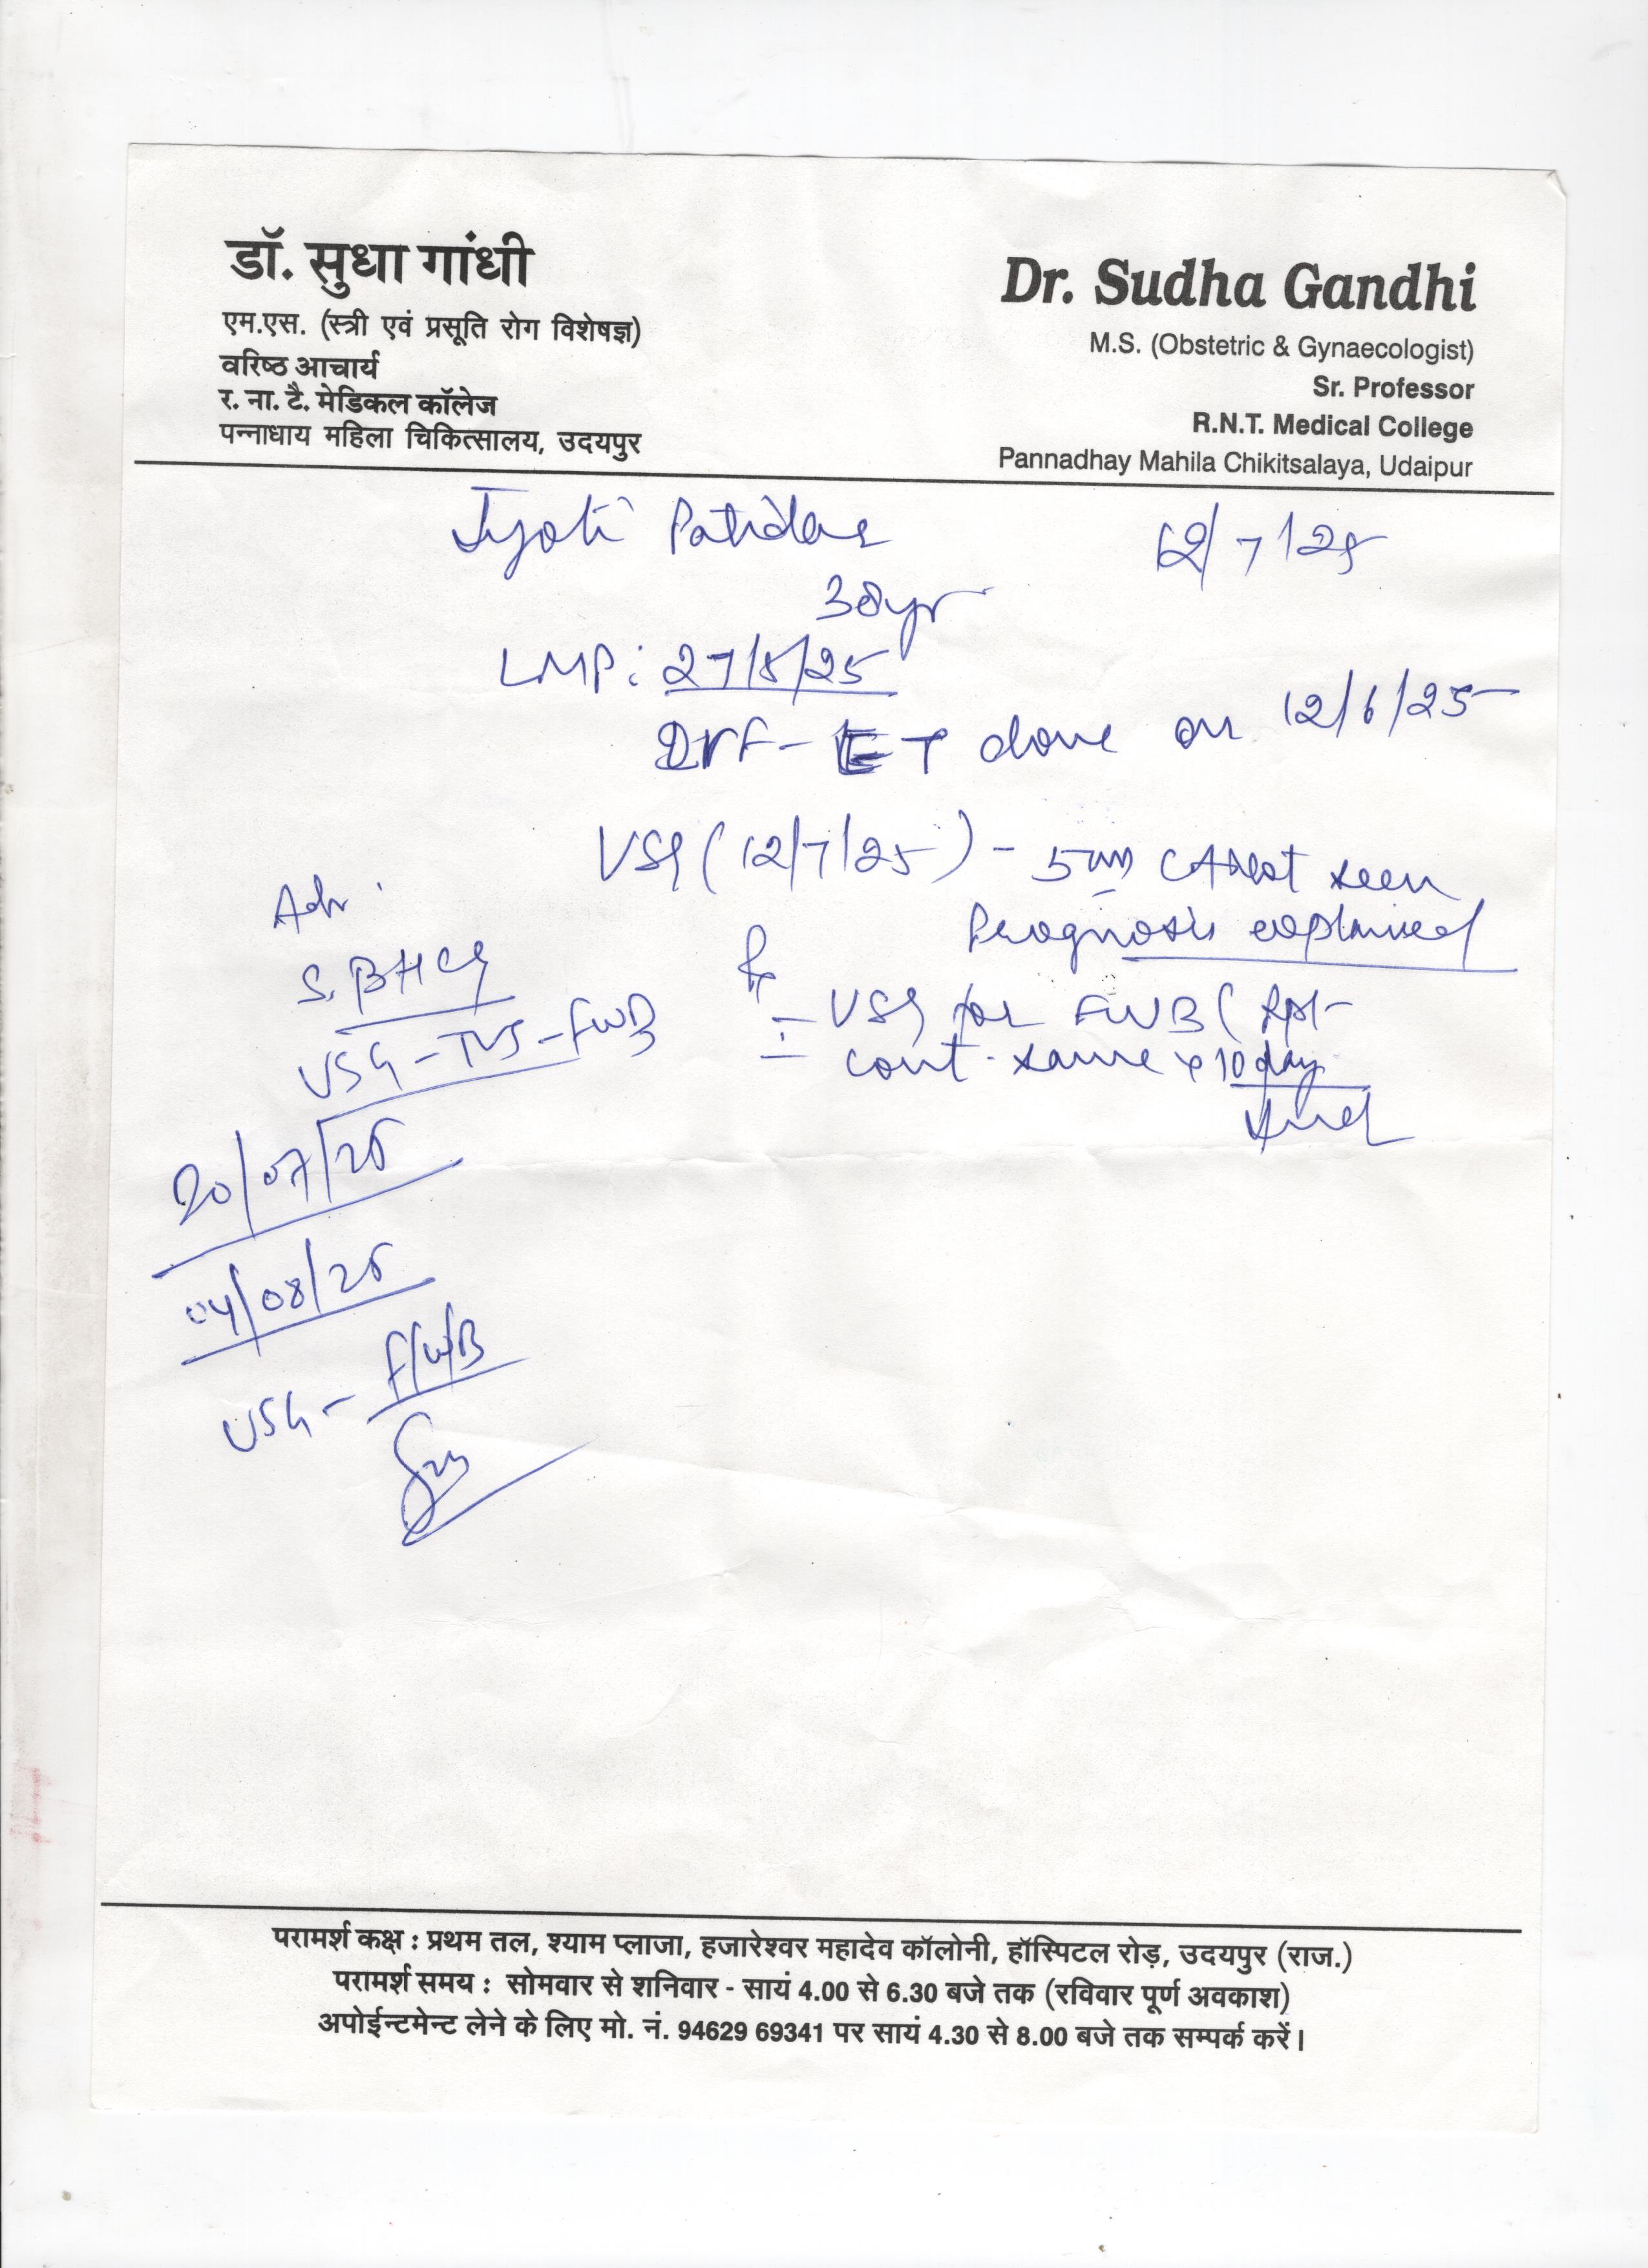 डॉ. सुधा गांधी
एम.एस. (स्त्री एवं प्रसूति रोग विशेषज्ञ)
वरिष्ठ आचार्य
र. ना. टै. मेडिकल कॉलेज
पन्नाधाय महिला चिकित्सालय, उदयपुर
Dr. Sudha Gandhi
M.S. (Obstetric & Gynaecologist)
Sr. Professor
R.N.T. Medical College
Pannadhay Mahila Chikitsalaya, Udaipur
Jyoti Patidar 12/7/25
30yr
LMP: 27/5/25
IVF-ET done on 12/6/25
USG (12/7/25) - seen
Prognosis explained
Rx
- USG for FWB (
- cont. same x 10 day
Adv
S. BHCG
USG-TVS-FWB
20/07/25
04/08/25
USG- F/W/B
परामर्श कक्ष : प्रथम तल, श्याम प्लाजा, हजारेश्वर महादेव कॉलोनी, हॉस्पिटल रोड़, उदयपुर (राज.)
परामर्श समय : सोमवार से शनिवार - सायं 4.00 से 6.30 बजे तक (रविवार पूर्ण अवकाश)
अपोईन्टमेन्ट लेने के लिए मो. नं. 94629 69341 पर सायं 4.30 से 8.00 बजे तक सम्पर्क करें।